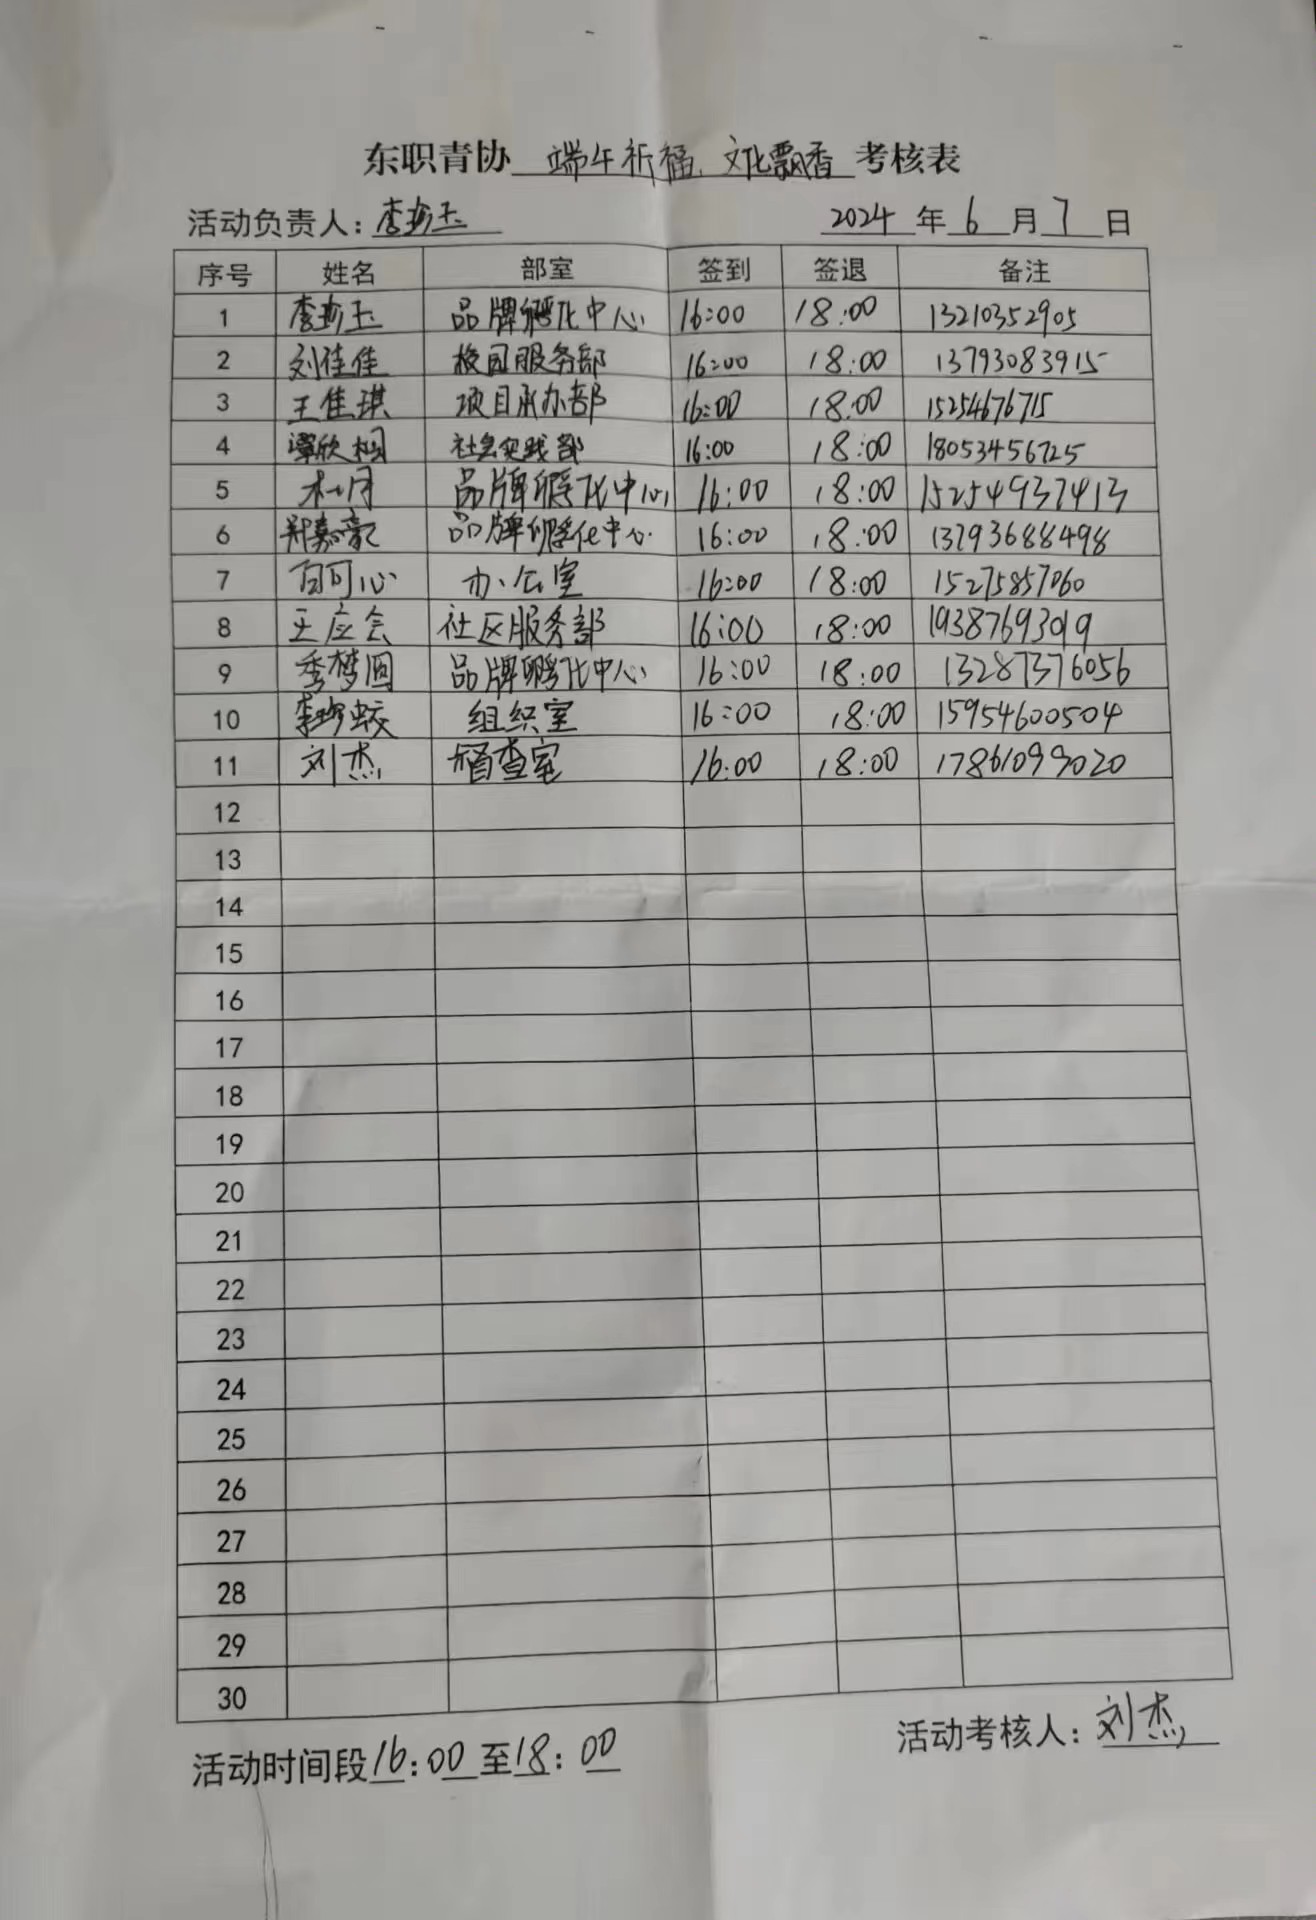 东职青协 端午祈福、文化飘香 考核表
活动负责人：李珍玉 2024 年 6 月 7 日
序号 姓名 部室 签到 签退 备注
1 李珍玉 品牌孵化中心 16:00 18:00 13210352905
2 刘佳佳 校园服务部 16:00 18:00 13793083915
3 王佳琪 项目承办部 16:00 18:00 15254676715
4 谭欣桐 社会实践部 16:00 18:00 18053456725
5 品牌孵化中心 16:00 18:00 15254937413
6 郑嘉豪 品牌孵化中心 16:00 18:00 13793688498
7 百可心 办公室 16:00 18:00 15275857060
8 王应会 社区服务部 16:00 18:00 19387693019
9 季梦圆 品牌孵化中心 16:00 18:00 13287376056
10 李珍蛟 组织室 16:00 18:00 15954600504
11 刘杰 督查室 16:00 18:00 17861099020
12
13
14
15
16
17
18
19
20
21
22
23
24
25
26
27
28
29
30
活动时间段16:00至18:00 活动考核人：刘杰